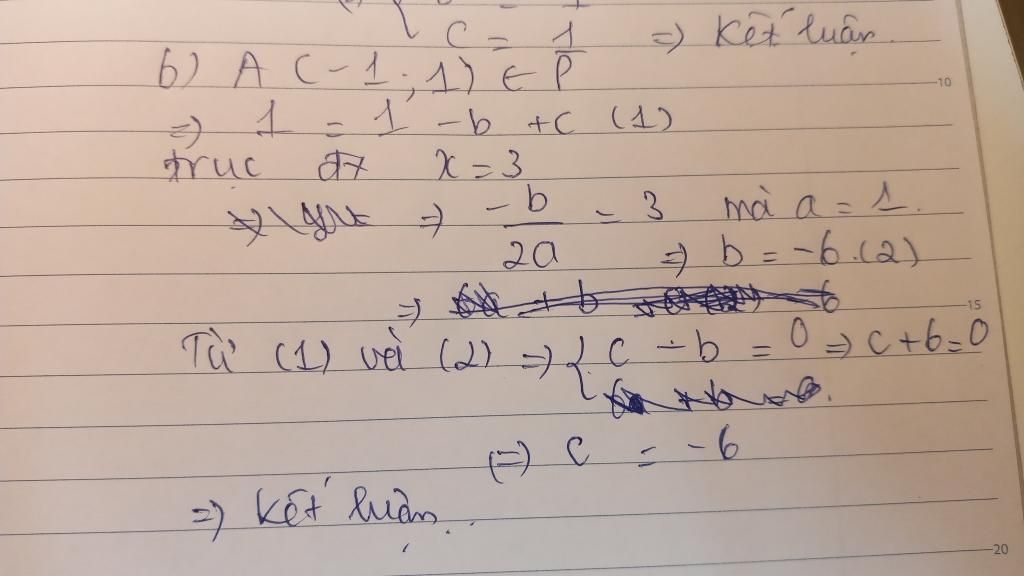 C = 1 => Kết luận.
b) A (-1; 1) ∈ P
=> 1 = 1 - b + c (1)
trục đx x = 3
=> -b/2a = 3 mà a = 1.
=> b = -6. (2)
=>
Từ (1) và (2) => { c - b = 0 => c + 6 = 0
(=) c = -6
=> Kết luận.
10
15
20